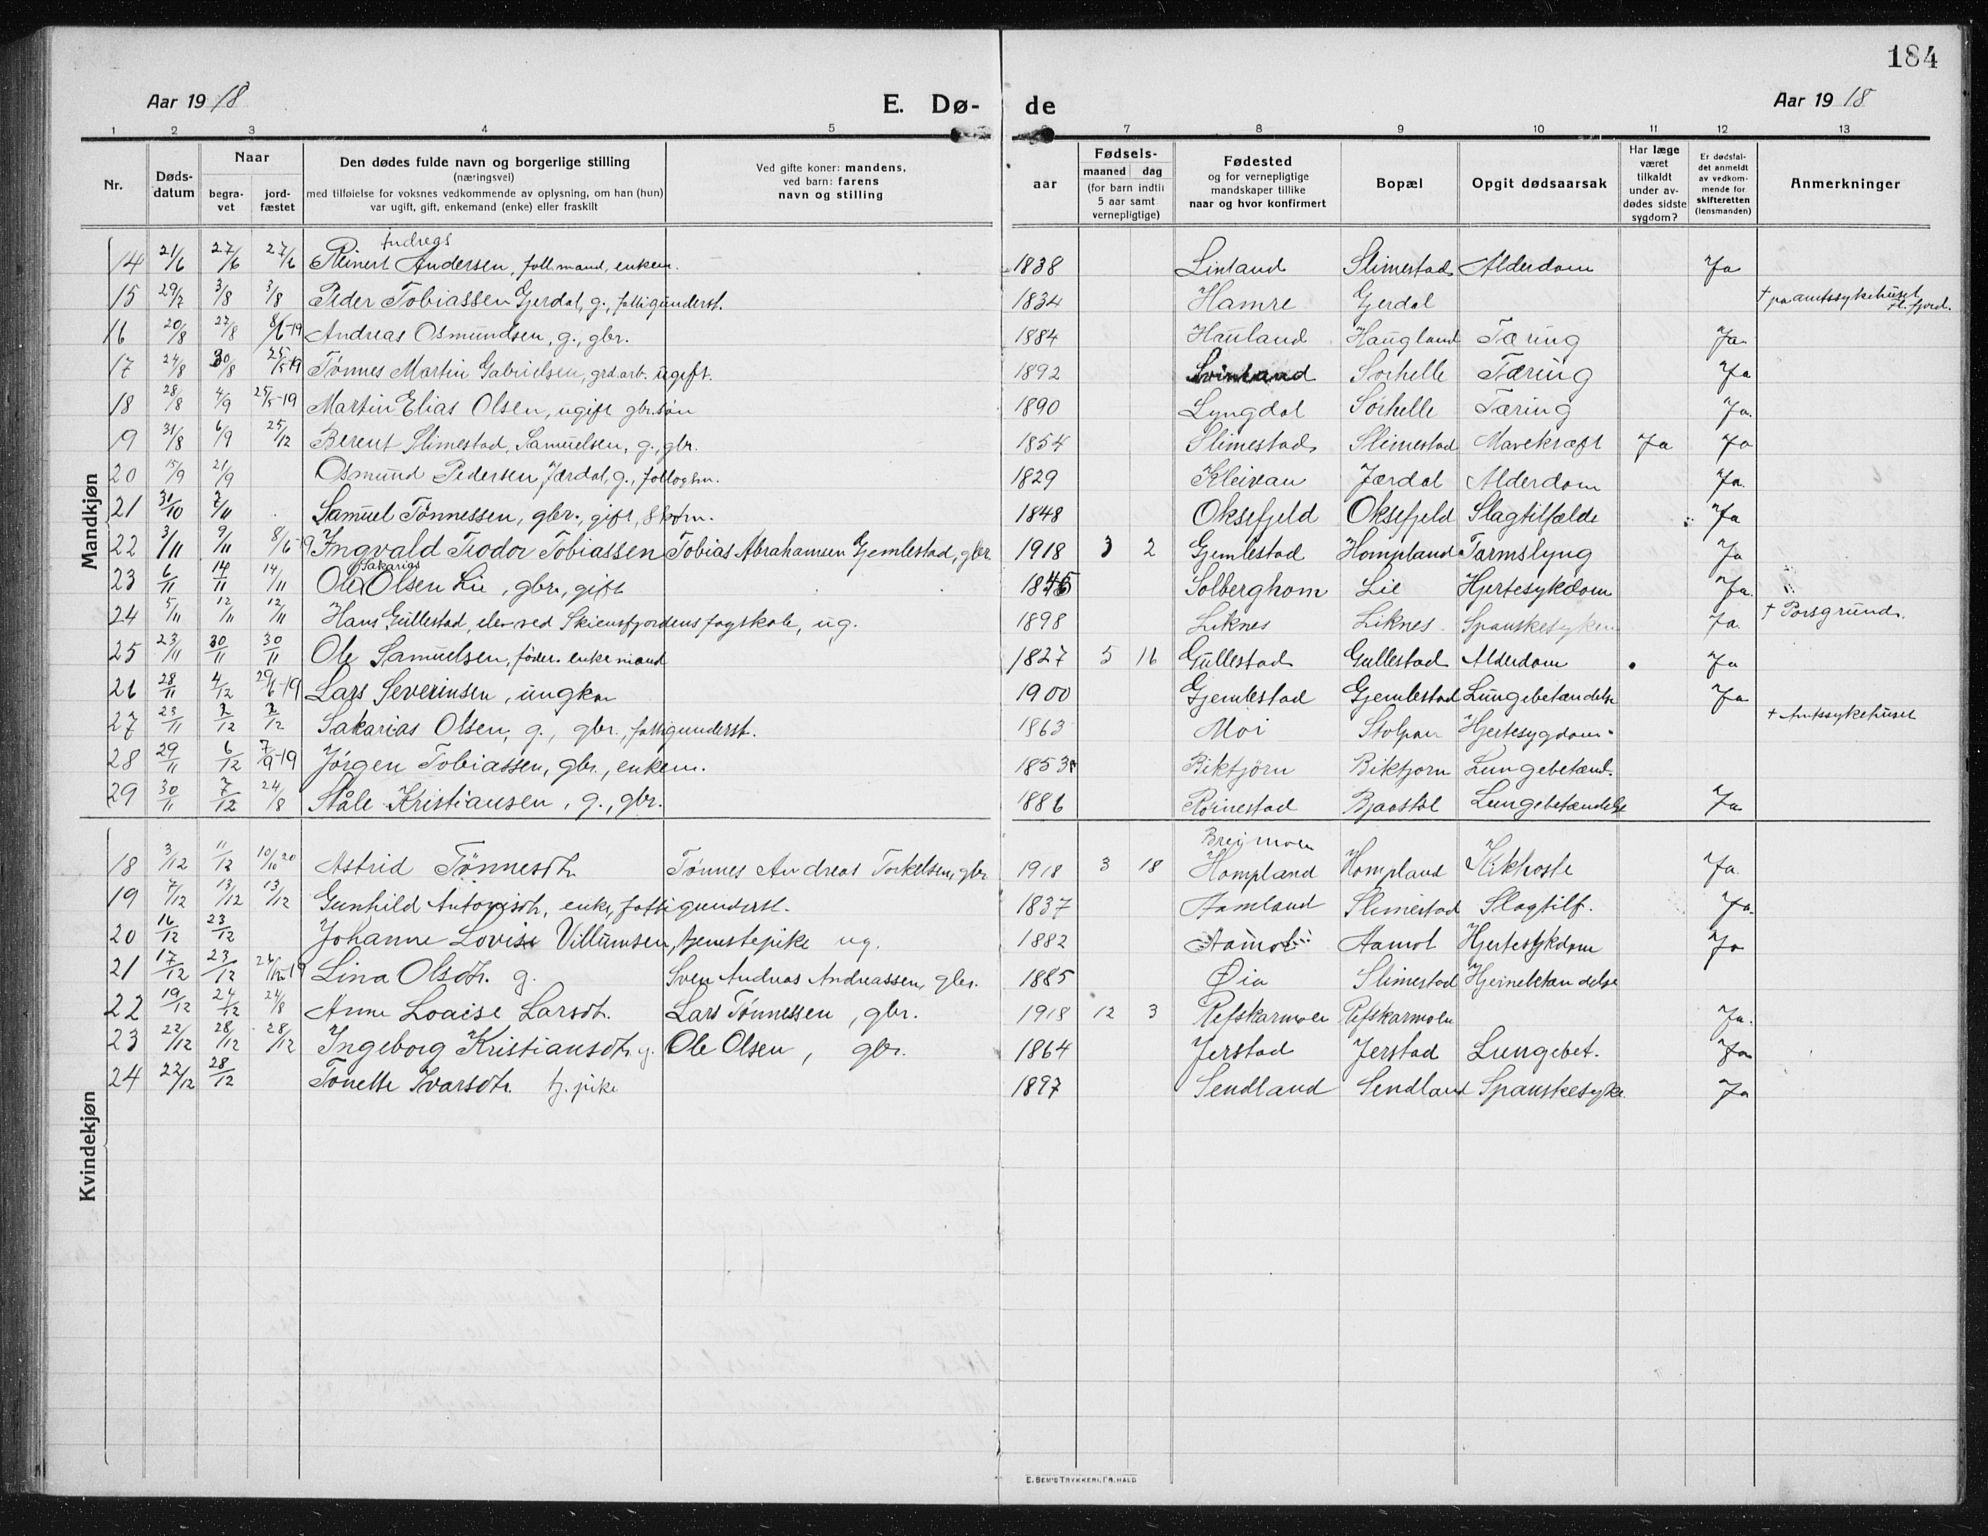 184
Aar 1918 E. Dø- de Aar 1918
1 2 3 4 5 7 8 9 10 11 12 13
Nr. Døds-datum Naar begra-vet jord-fæstet Den dødes fulde navn og borgerlige stilling (næringsvei) med tilføielse for voksnes vedkommende av oplysning, om han (hun) var ugift, gift, enkemand (enke) eller fraskilt Ved gifte koner: mandens, ved barn: farens navn og stilling aar Fødsels- maaned dag (for barn indtil 5 aar samt vernepligtige) Fødested og for vernepligtige mandskaper tillike naar og hvor konfirmert Bopæl Opgit dødsaarsak Har læge været tilkaldt under av-dødes sidste sygdom? Er dødsfal-det anmeldt av vedkom-mende for skifteretten (lensmanden) Anmerkninger
Mandkjøn
Andreas
14 21/6 27/6 27/6 Reinert Andersen, foll.mand, enkem. 1838 Lintand Slimestad Alderdom Ja
15 29/7 3/8 3/8 Peder Tobiassen Gjerdal, g., fattigunderst. 1834 Hamre Gjerdal † paa amtssykehuset Fl.fjord.
16 20/8 27/8 8/6-19 Andreas Osmundsen, g., gbr. 1884 Hauland Haugland Tæring Ja
17 24/8 30/8 25/5-19 Tønnes Martin Gabrielsen, grd.arb. ugift. 1892 Svinland Sørhelle Tæring Ja
18 28/8 4/9 25/5-19 Martin Elias Olsen, ugift gbr.søn 1890 Lyngdal Sørhelle Tæring Ja.
19 31/8 6/9 25/12 Berent Slimestad Samuelsen, g., gbr. 1854 Slimestad Slimestad Mavekræft Ja Ja
20 15/9 21/9 Osmund Pedersen Jærdal, g., follogsm. 1829 Kleivan Jærdal Alderdom Ja.
21 31/10 7/11 Samuel Tønnessen, gbr., gift, 8 barn. 1848 Oksefjeld Oksefjeld Slagtilfælde Ja
22 3/11 9/11 8/6-19 Ingvald Teodor Tobiassen Tobias Abrahamsen Gjemlestad, gbr 1918 3 2 Gjemlestad Hompland Tarmslyng Ja
Sakarias
23 6/11 14/11 14/11 Ole Olsen Lie, gbr., gift 1845 Solberghom Lie Hjertesykdom Ja.
24 5/11 12/11 12/11 Hans Gullestad, elev ved Skiensfjordens fagskole, ug. 1898 Liknes Liknes Spanskesyken Ja. † Porsgrund.
25 23/11 30/11 30/11 Ole Samuelsen, føder. enkemand 1827 5 16 Gullestad Gullestad Alderdom Ja
26 28/11 4/12 29/6-19 Lars Severinsen, ungkar 1900 Gjemlestad Gjemlestad Lungebetændelse Ja
27 23/11 2/12 2/12 Sakarias Olsen, g., gbr., fattigunderst. 1863 Moi Stolpan Hjertesygdom † Amtssykehuset
28 29/11 6/12 7/9-19 Jørgen Tobiassen, gbr., enkem. 1853 Biktjørn Biktjørn Lungebetænd.
29 30/11 7/12 24/8 Ståle Kristiansen, g., gbr. 1886 Rørnestad Bjaastøl Lungebetændelse Ja
Kvindekjøn
Breimoen
18 3/12 11/12 10/10 20 Astrid Tønnesdtr. Tønnes Andreas Torkelsen, gbr 1918 3 18 Hompland Hompland Kikhoste Ja
19 7/12 13/12 13/12 Gunhild Antonisdtr, enke, fattigunderst. 1837 Aamland Slimestad Slagtilf. Ja.
20 16/12 23/12 Johanne Lovise Villumsen, tjenestepike ug. 1882 Aamot Aamot Hjertesykdom Ja
21 17/12 23/12 Lina Olsdtr. g. Sven Andreas Andreassen, gbr. 1885 Øia Slimestad Hjernebetændelse
22 19/12 24/12 24/8 Anne Loaise Larsdtr. Lars Tønnessen, gbr. 1918 12 3 Refskarmoen Refskarmoen Ja.
23 22/12 28/12 28/12 Ingeborg Kristiansdtr. g. Ole Olsen, gbr. 1864 Jerstad Jerstad Lungebet. Ja
24 22/12 28/12 Tonette Ivarsdtr. tj. pike 1897 Sendland Sendland Spanskesyke. Ja
E. SEM'S TRYKKERI, FR.HALD